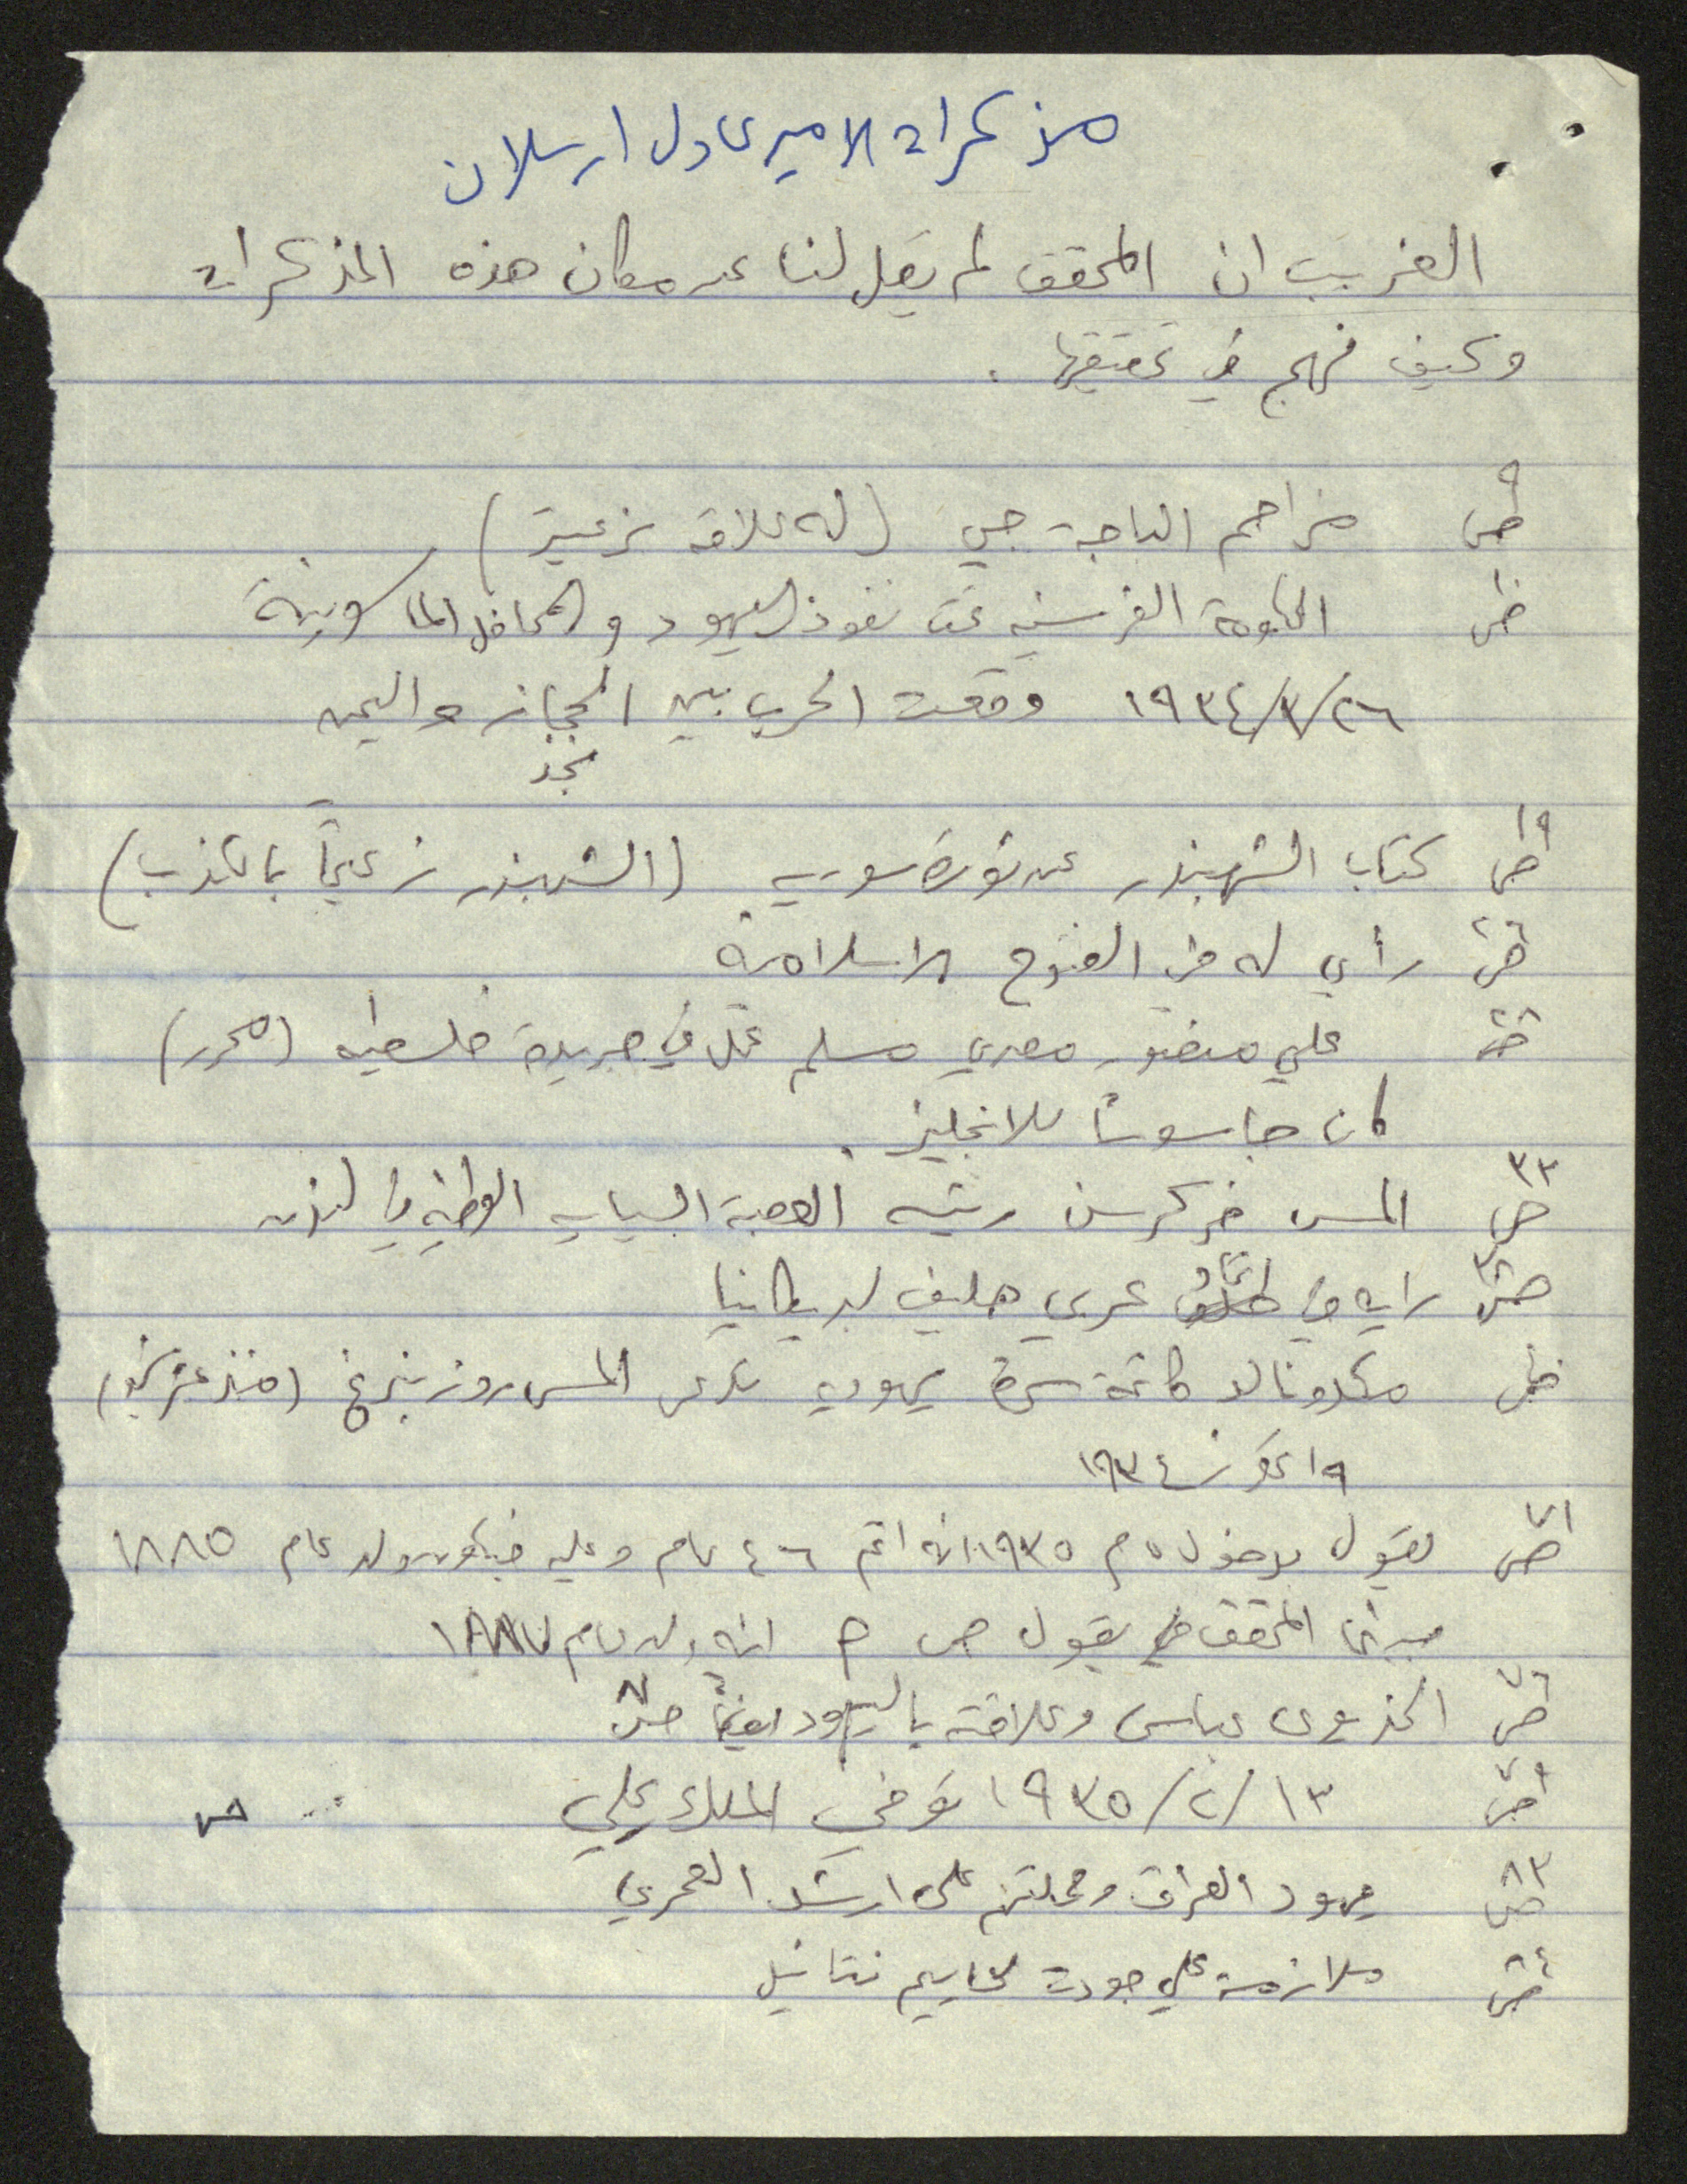 مذكرات الامير عادل ارسلان
الغريب ان المحقق لم يقل لنا عن مكان هذه المذكرات
وكيف نهج في تحقيقها .
ص٩ مزاحم الباجة جي (له علاقة
ص الحكومة الفرنسية تحت نفوذ اليهود والمحافل الماسونية
٢٦/٣/١٩٣٤ وقعت الحرب بين الحجاز واليمن
نجد
ص١٩ كتاب الشهبندر عن ثورة سورية (الشهبندر زعيماً بالكذب)
ص٢٦ رأي له في الفتوح الاسلامية
ص٢٨ علي منصور مصري مسلم عمل في جريدة فلسطين (محرر)
كان جاسوساً للانجليز .
ص٣٣ المس فركرسن رئيسة العصبة السياسية الوطنية في لندن
ص رايه في اتحاد عربي حليف لبريطانيا
ص مكدونالد كاتمة سره يهودية تدعى المس روزنبرغ (منذ عشر
١٩ تموز ١٩٣٤
ص٧١ يقول بدخول عام ١٩٣٥ انه اتم ٤٦ عام وعليه فيكون ولد عام ١٨٨٥
بينما المحقق يقول ص ٥ انه ولد عام ١٨٨٧
ص٧٦ الخديوي عباس وعلاقته باليهود ايضاً ص٨٠
ص٧٩ ١٣/٢/١٩٣٥ توفي الملك علي ص
ص٨٣ يهود العراق وحملتهم على ارشد العمري
ص٨٤ ملازمة علي جودت لحاييم نتانيل